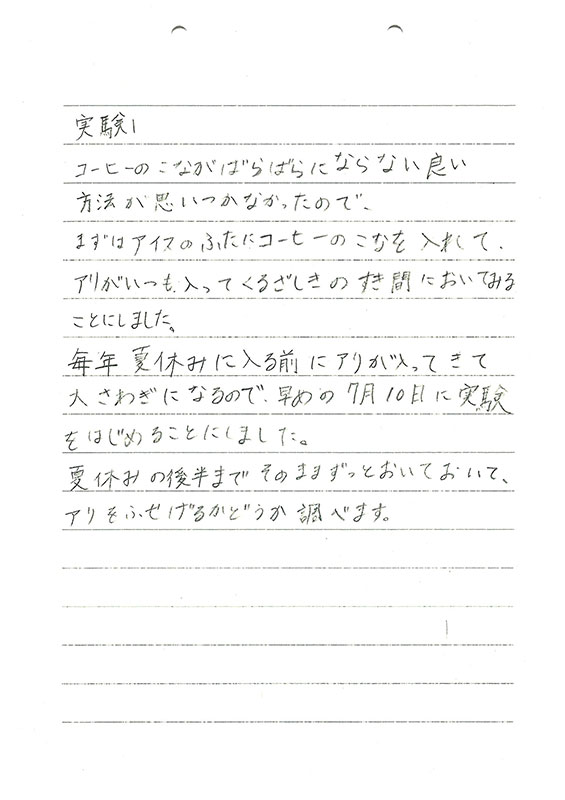 実験1
コーヒーのこながばらばらにならない良い
方法が思いつかなかったので、
まずはアイスのふたにコーヒーのこなを入れて、
アリがいつも入ってくるざしきのすき間においてみる
ことにしました。
毎年夏休みに入る前にアリが入ってきて
大さわぎになるので、早めの7月10日に実験
をはじめることにしました。
夏休みの後半までそのままずっとおいておいて、
アリをふせげるかどうか調べます。